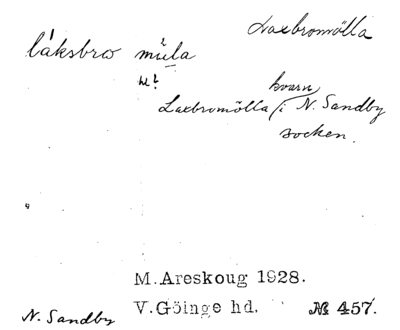 Laxbromölla
låksbro mu̇la
kvarn
Laxbromölla / i N. Sandby
socken.
M. Areskoug 1928.
V. Göinge hd. № 457.
N. Sandby